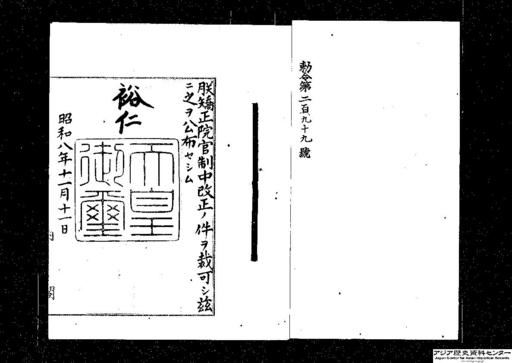 勅令第二百九十九號
朕矯正院官制中改正ノ件ヲ裁可シ茲
ニ之ヲ公布セシム
裕仁
天皇
御璽
昭和八年十一月十一日
内閣
アジア歴史資料センター
Japan Center for Asian Historical Records